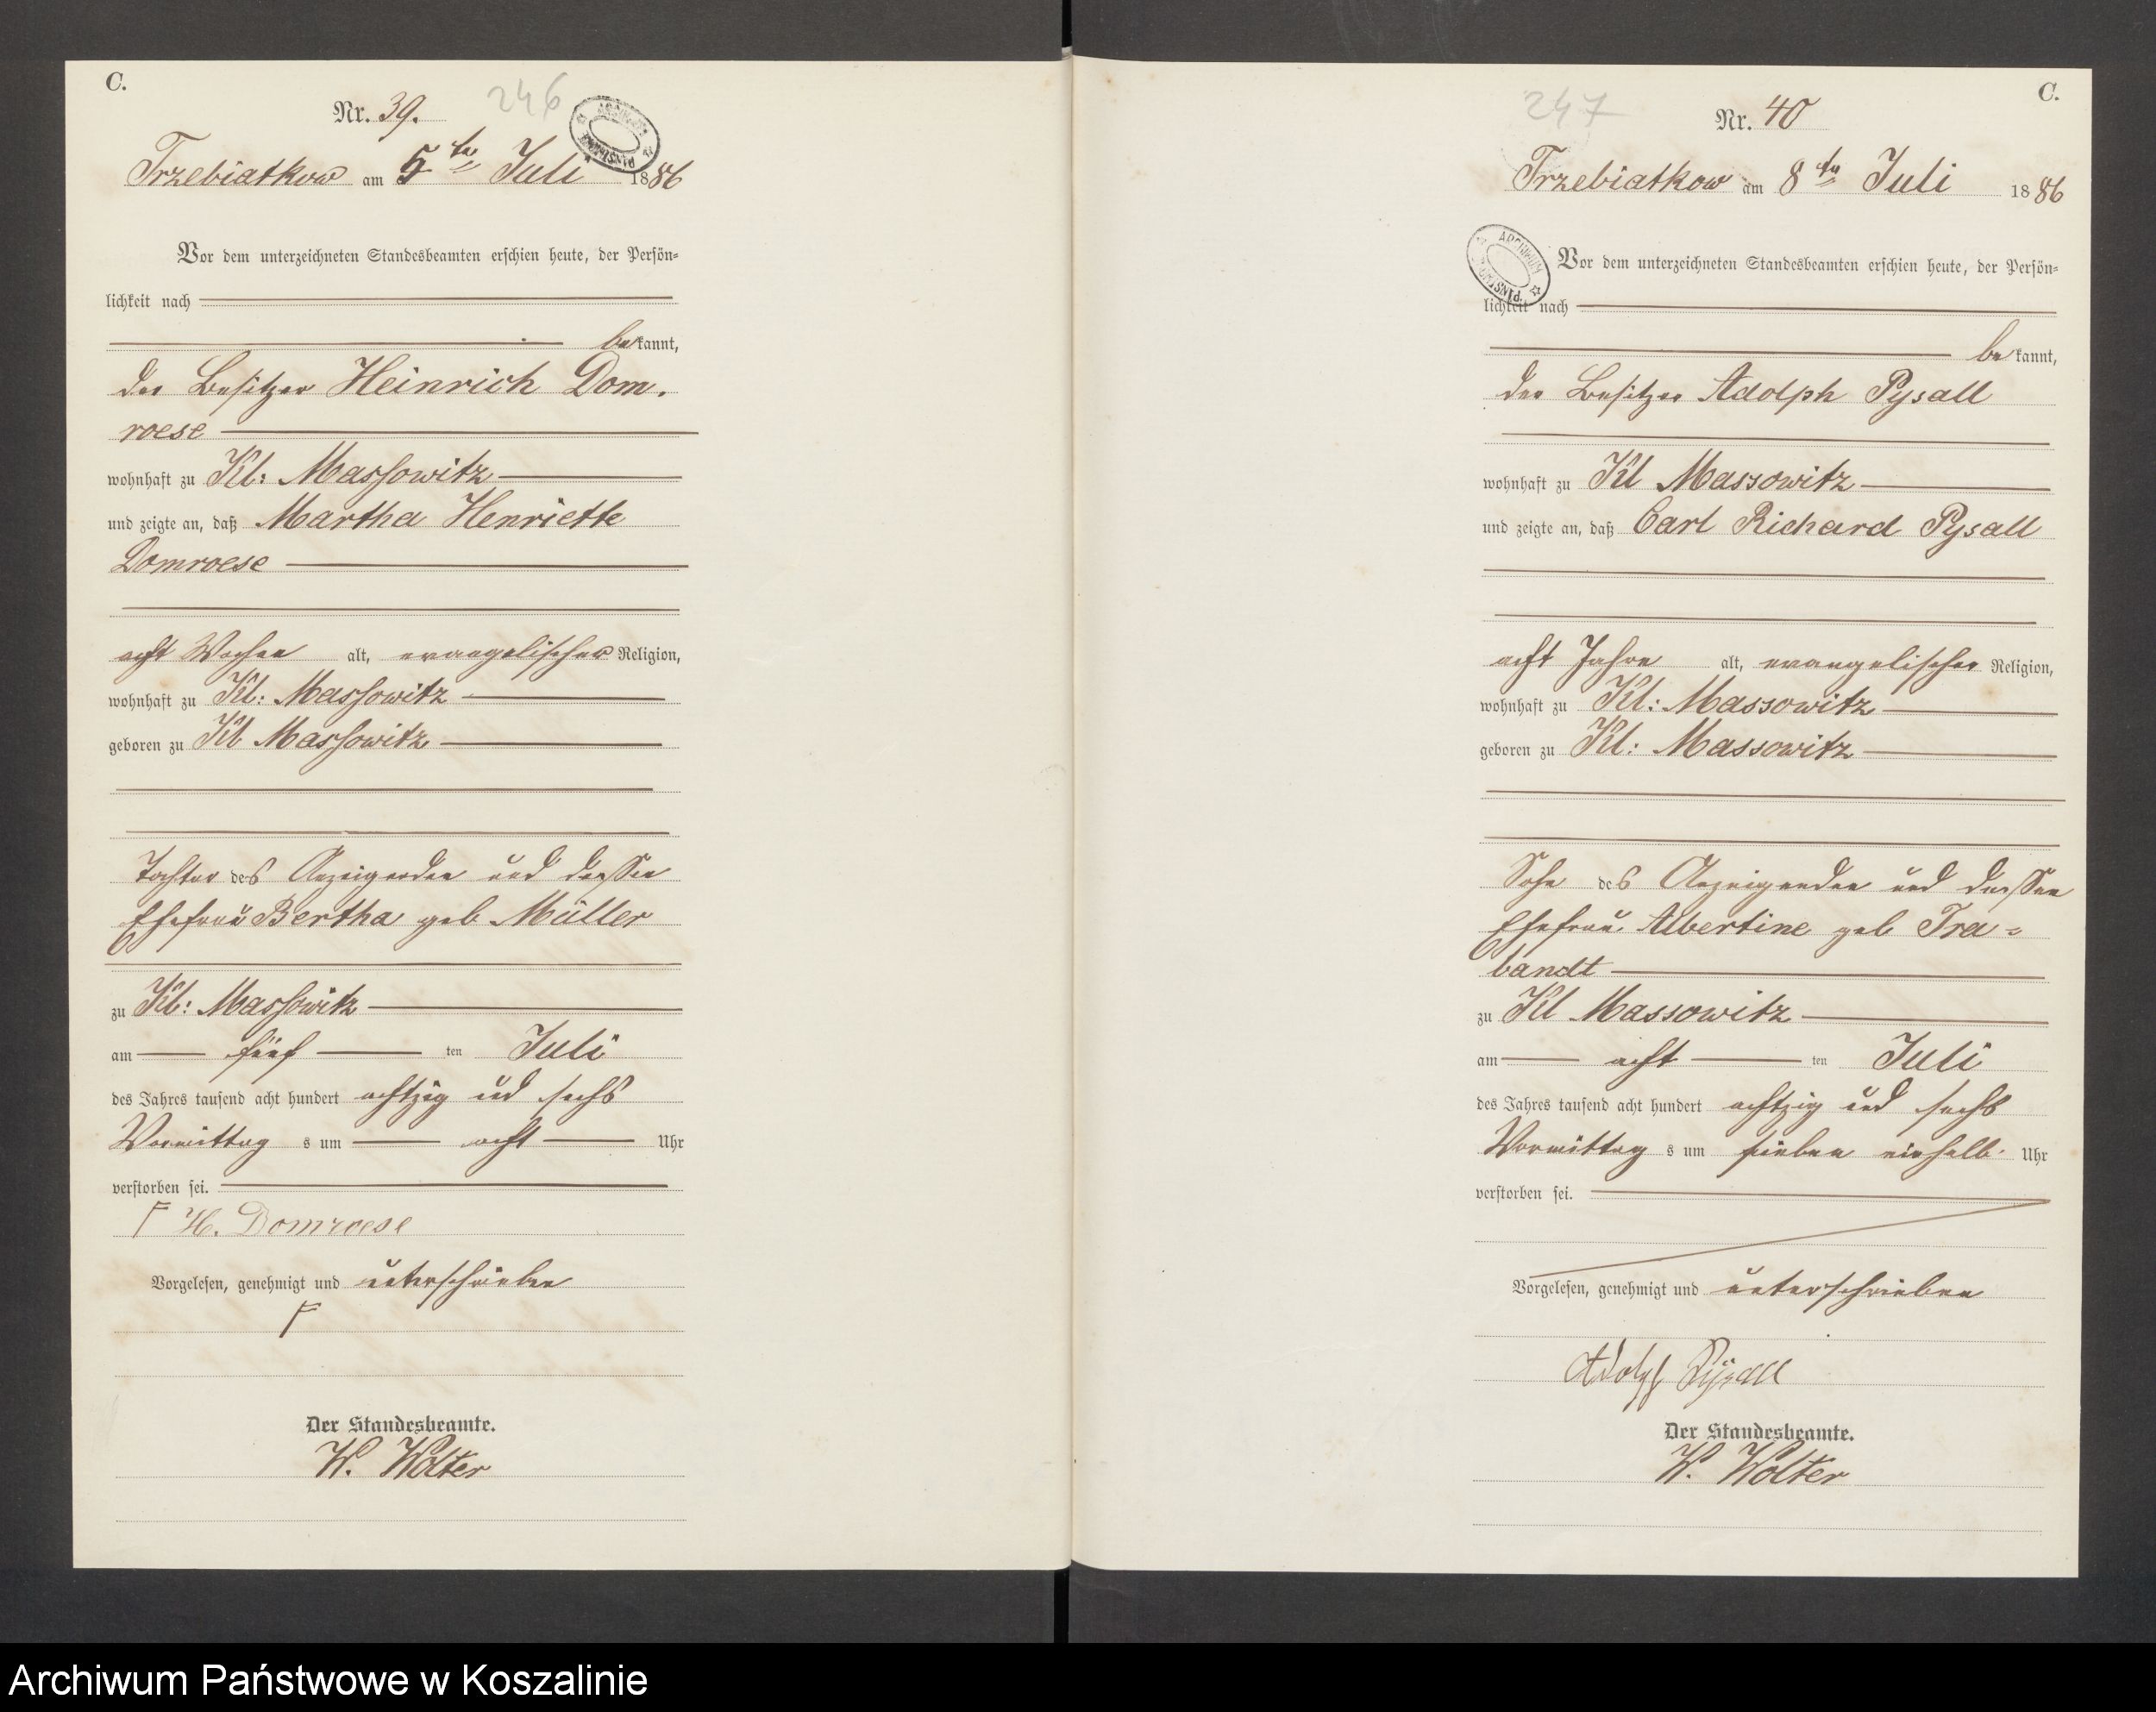 C.
Nr. 39.
246
Trzebiatkow am 5ten Juli 1886
Vor dem unterzeichneten Standesbeamten erschien heute, der Persön-
lichkeit nach
bekannt,
der Besitzer Heinrich Dom.
roese
wohnhaft zu Kl: Massowitz
und zeigte an, daß Martha Henriette
Domroese
acht Wochen alt, evangelischer Religion,
wohnhaft zu Kl: Massowitz
geboren zu Kl Massowitz
Tochter des Anzeigenden und dessen
Ehefrau Bertha geb Müller
zu Kl: Massowitz
am fünf ten Juli
des Jahres tausend acht hundert achtzig und sechs
Vormittag s um acht Uhr
verstorben sei.
H. Domroese
Vorgelesen, genehmigt und unterschrieben
Der Standesbeamte.
W. Wolter
C.
247
Nr. 40
Trzebiatkow am 8ten Juli 1886
ARCHIWUM
Vor dem unterzeichneten Standesbeamten erschien heute, der Persön-
lichkeit nach
bekannt,
der Besitzer Adolph Pysall
wohnhaft zu Kl Massowitz
und zeigte an, daß Carl Richard Pysall
acht Jahre alt, evangelischer Religion,
wohnhaft zu Kl: Massowitz
geboren zu Kl: Massowitz
Sohn des Anzeigenden und dessen
Ehefrau Albertine geb Tra-
bandt
zu Kl Massowitz
am acht ten Juli
des Jahres tausend acht hundert achtzig und sechs
Vormittag s um sieben einhalb Uhr
verstorben sei.
Vorgelesen, genehmigt und unterschrieben
Adolph Pysall
Der Standesbeamte.
W. Wolter
Archiwum Państwowe w Koszalinie